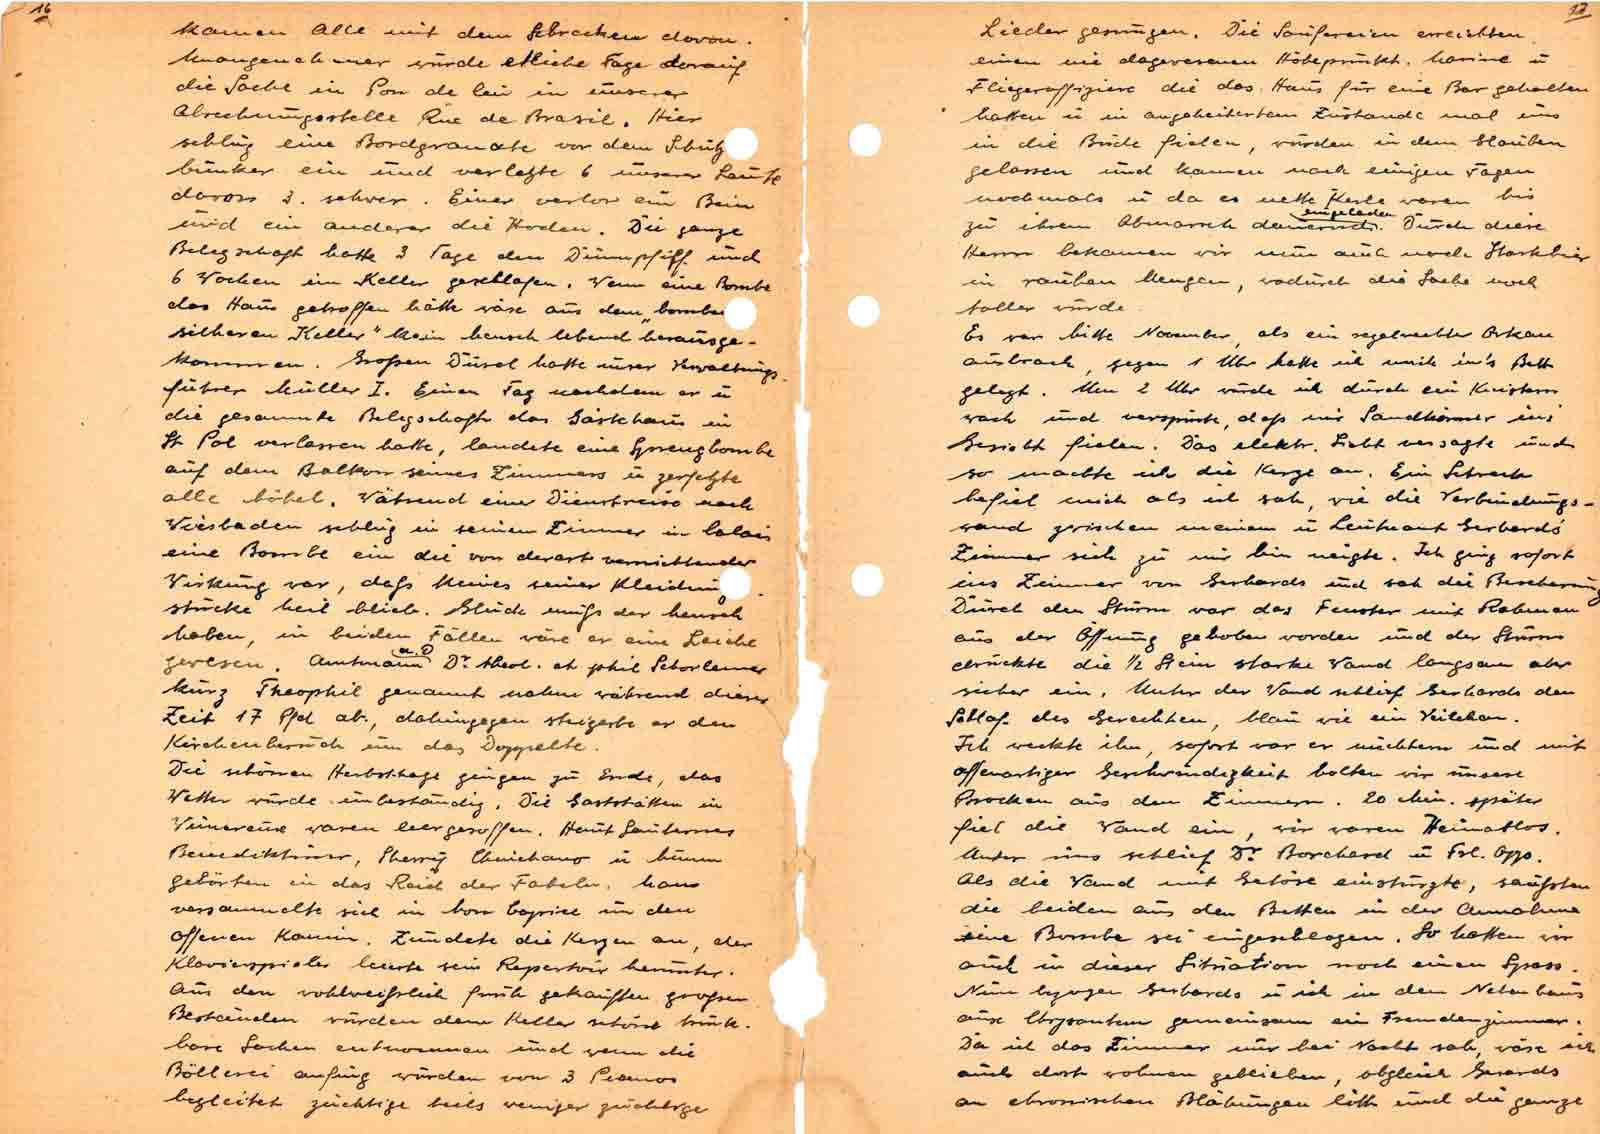 16
kamen Alle mit dem Schrecken davon.
Unangenehmer wurde etliche Tage darauf
die Sache in in unserer
Abrechnungsstelle Rue de Brasil. Hier
schlug eine Bordgranate vor dem Schutz
bunker ein und verletzte 6 unserer Leute
davon 3. schwer. Einer verlor ein Bein
und ein anderer die Hoden. Die ganze
Belegschaft hatte 3 Tage den Dünnpfiff und
6 Wochen im Keller geschlafen. Wenn eine Bombe
das Haus getroffen hätte wäre aus dem „bomben
sicheren Keller" kein Mensch lebend herausge-
kommen. Großen Dusel hatte unser Verwaltungs-
führer Müller I. Einen Tag nachdem er u
die gesammte Belegschaft das Gästehaus in
St Pol verlassen hatte, landete eine Sprengbombe
auf dem Balkon seines Zimmers u zerfetzte
alle Möbel. Während einer Dienstreise nach
Wiesbaden schlug in seinem Zimmer in Calais
eine Bombe ein die von derart vernichtender
Wirkung war, daß keines seiner Kleidung
stücke heil blieb. Glück muß der Mensch
haben, in beiden Fällen wäre er eine Leiche
gewesen. Amtmann a.D Dr. theol. et phil Schorlemer
kurz Theophil genannt nahm während dieser
Zeit 17 Pfd ab, dahingegen steigerte er den
Kirchenbesuch um das Doppelte.
Die schönen Herbsttage gingen zu Ende, das
Wetter wurde unbeständig. Die Gaststätten in
Wimereux waren leergesoffen. Haut Sauternes
Benediktiner, Sherry u
gehörten in das Reich der Fabeln. Man
versammelte sich in Mon Caprice um den
offenen Kamin. Zündete die Kerzen an, der
Klavierspieler leierte sein Repertoir herunter.
Aus den wohlweißlich früh gekauften großen
Beständen wurden dem Keller schöne trink-
bare Sachen entnommen und wenn die
Böllerei anfing wurden von 3 Pianos
begleitet züchtige teils weniger züchtige
17
Lieder gesungen. Die Saufereien erreichten
einen nie dagewesenen Höhepunkt. Marine u
Fliegeroffiziere die das Haus für eine Bar gehalten
hatten u in angeheitertem Zustande mal uns
in die Bude fielen, wurden in dem Glauben
gelassen und kamen nach einigen Tagen
nochmals u da es nette Kerle waren bis
zu ihrem Abmarsch dauernd eingeladen. Durch diese
Herrn bekamen wir nun auch noch Starkbier
in rauhen Mengen, wodurch die Sache noch
toller wurde.
Es war Mitte November, als ein regelrechter Orkan
ausbrach, gegen 1 Uhr hatte ich mich in's Bett
gelegt. Um 2 Uhr wurde ich durch ein Knistern
wach und verspürte, daß mir Sandkörner ins
Gesicht fielen. Das elektr. Licht versagte und
so machte ich die Kerze an. Ein Schreck
befiel mich als ich sah, wie die Verbindungs-
wand zwischen meinem u Leutnant Gerhards
Zimmer sich zu mir hin neigte. Ich ging sofort
ins Zimmer von Gerhards und sah die Bescherung
Durch den Sturm war das Fenster mit Rahmen
aus der Öffnung gehoben worden und der Sturm
drückte die ½ Stein starke Wand langsam aber
sicher ein. Unter der Wand schlief Gerhards den
Schlaf des Gerechten, blau wie ein Veilchen.
Ich weckte ihn, sofort war er nüchtern und mit
affenartiger Geschwindigkeit holten wir unsere
Brocken aus den Zimmern. 20 Min. später
fiel die Wand ein, wir waren Heimatlos.
Unter uns schlief Dr. Borchard u Frl. Opp.
Als die Wand mit Getöse einstürzte, sausten
die beiden aus den Betten in der Annahme
eine Bombe sei eingeschlagen. So hatten wir
auch in dieser Situation noch einen Spass.
Nun bezogen Gerhards u ich in dem Nebenhaus
aux Chrysantem gemeinsam ein Fremdenzimmer.
Da ich das Zimmer nur bei Nacht sah, wäre ich
auch dort wohnen geblieben, obgleich Gerards
an chronischen Blähungen litt und die ganze